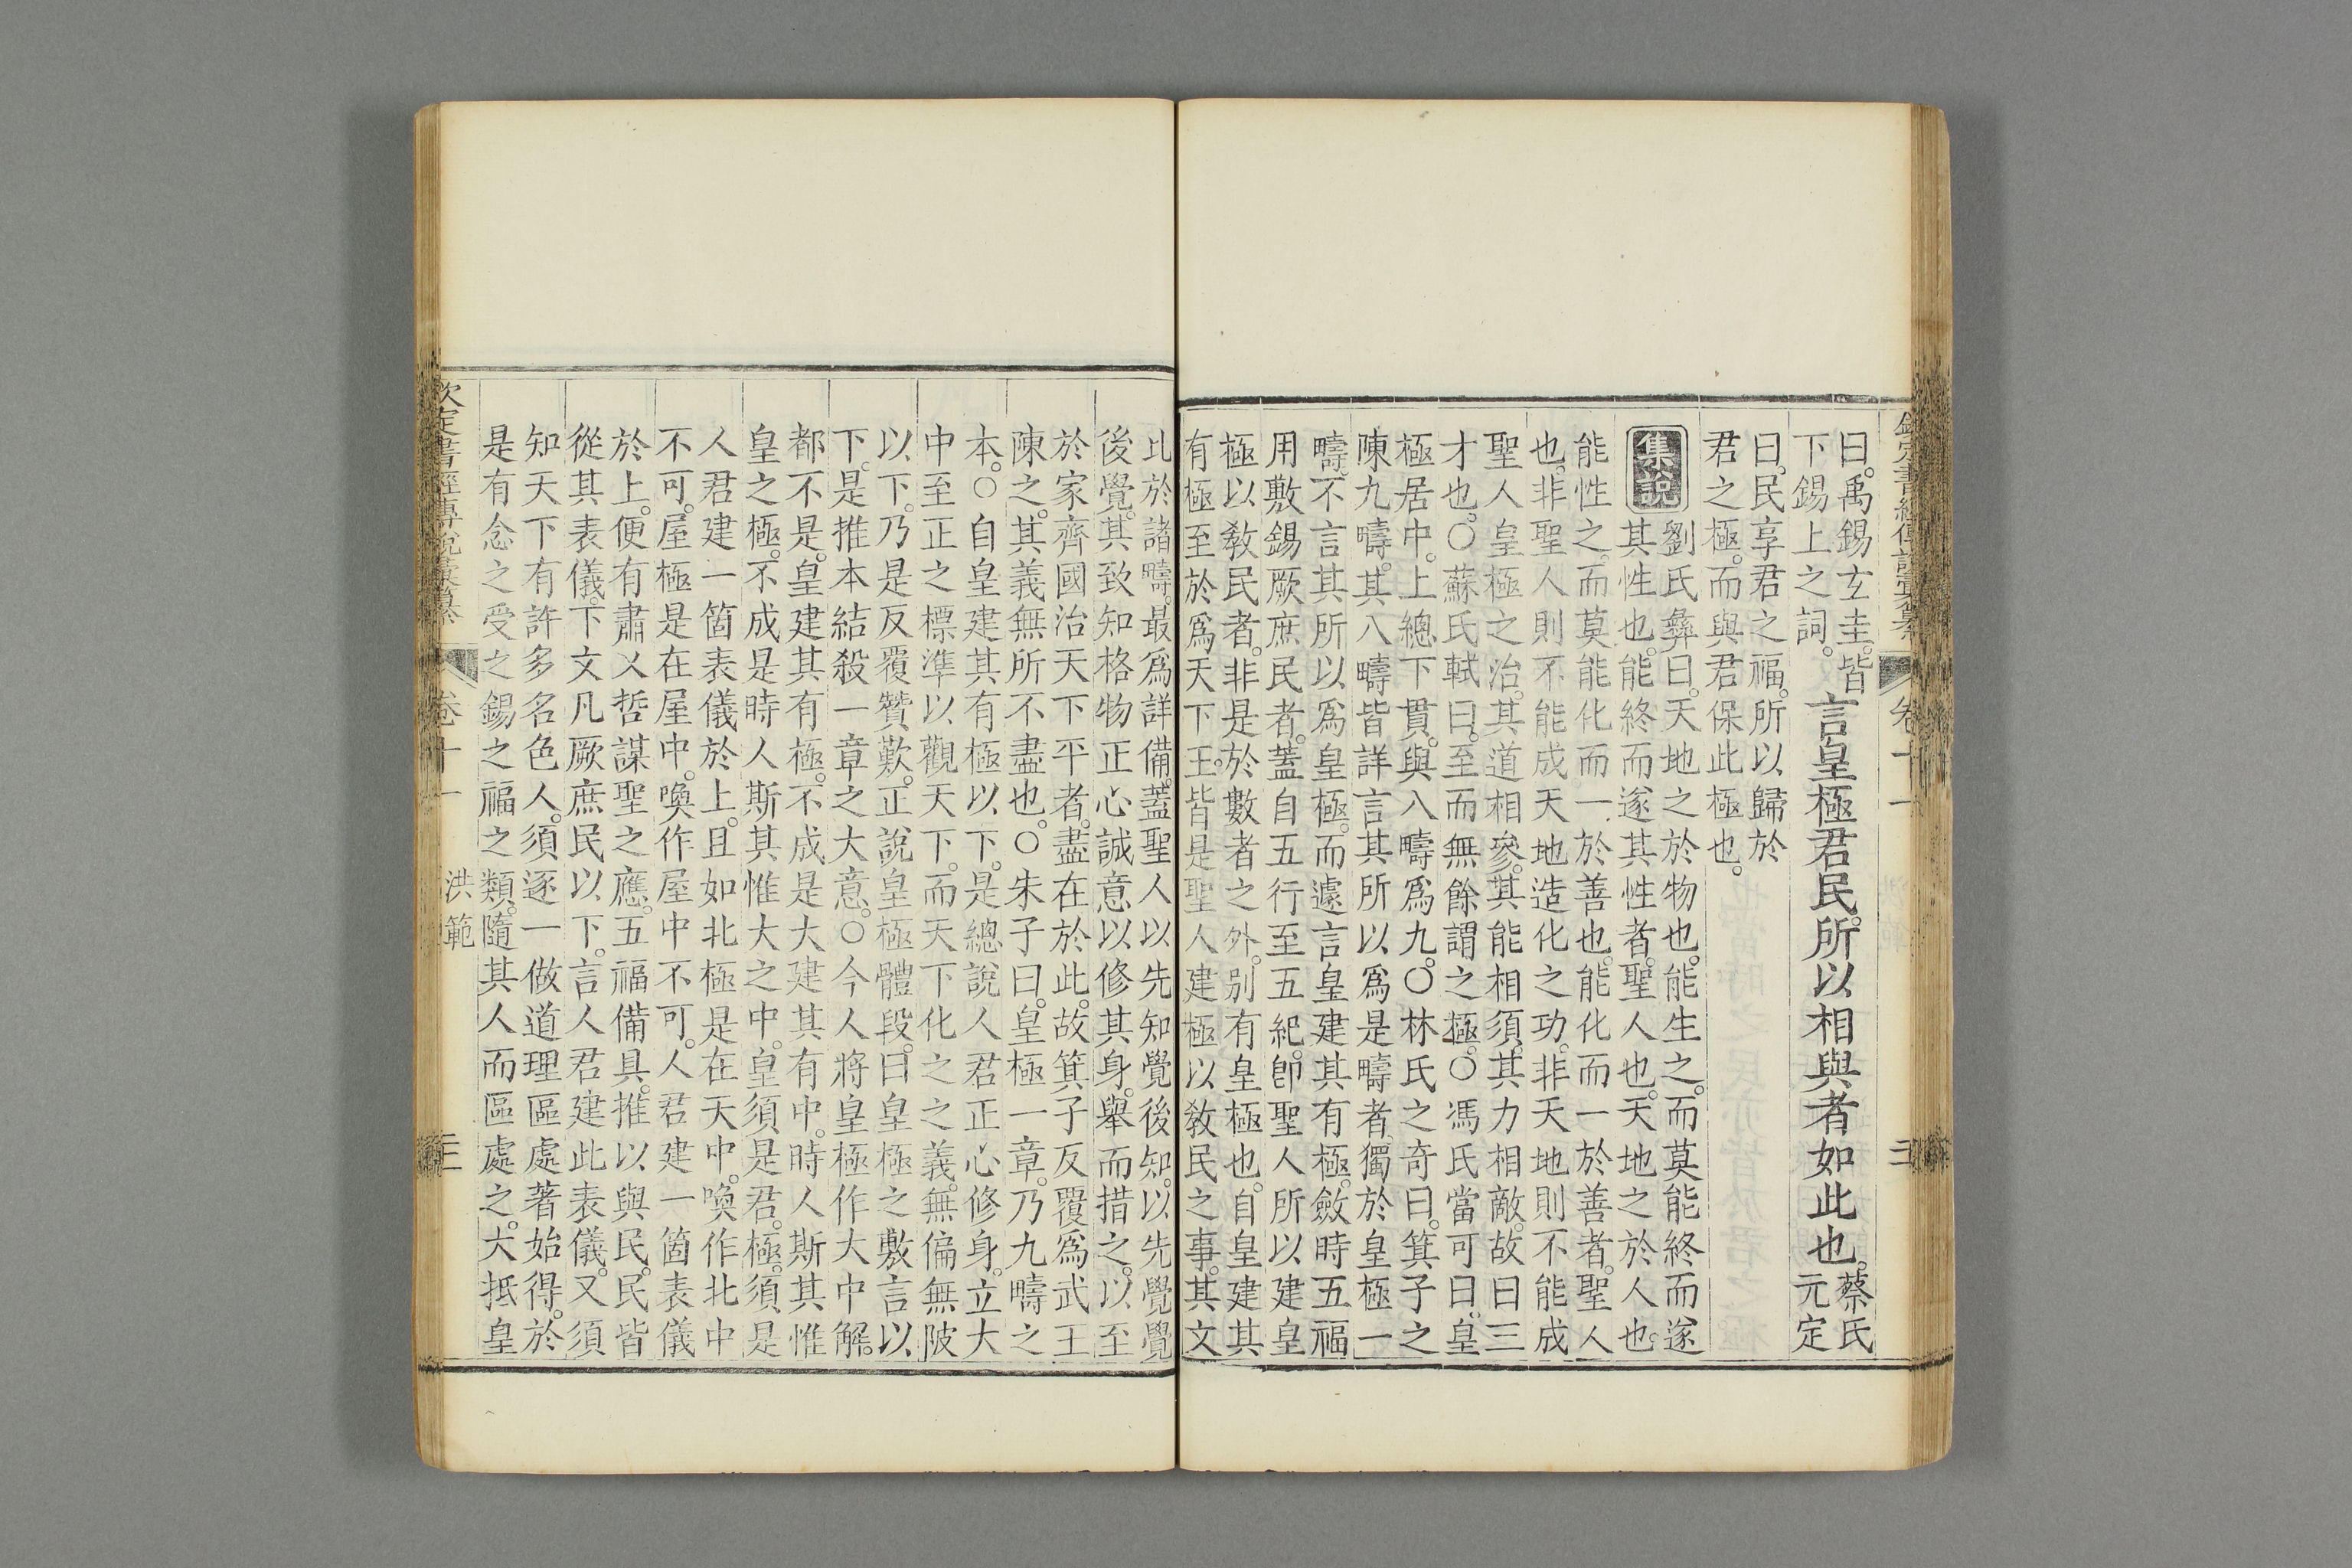 欽定書經傳說彙纂 卷十一
曰。禹錫玄圭。皆
下錫上之詞。
言皇極君民。所以相與者如此也。
蔡氏
元定
曰。民享君之福。所以歸於
君之極。而與君保此極也。
集說
劉氏彝曰。天地之於物也。能生之。而莫能終而遂
其性也。能終而遂其性者。聖人也。天地之於人也。
能性之。而莫能化而一於善也。能化而一於善者。聖人
也。非聖人則不能成天地造化之功。非天地則不能成
聖人皇極之治。其道相參。其能相須。其力相敵。故曰三
才也。○蘇氏軾曰。至而無餘謂之極。○馮氏當可曰。皇
極居中。上總下貫。與八疇爲九。○林氏之奇曰。箕子之
陳九疇。其八疇皆詳言其所以爲是疇者。獨於皇極一
疇。不言其所以爲皇極。而遽言皇建其有極。斂時五福
用敷錫厥庶民者。蓋自五行至五紀。卽聖人所以建皇
極以敎民者。非是於數者之外。別有皇極也。自皇建其
有極至於爲天下王。皆是聖人建極以敎民之事。其文
比於諸疇。最爲詳備。蓋聖人以先知覺後知。以先覺覺
後覺。其致知格物正心誠意以修其身。舉而措之。以至
於家齊國治天下平者。盡在於此。故箕子反覆爲武王
陳之。其義無所不盡也。○朱子曰。皇極一章。乃九疇之
本。○自皇建其有極以下。是總說人君正心修身。立大
中至正之標準以觀天下。而天下化之之義。無偏無陂
以下。乃是反覆贊歎。正說皇極體段。曰皇極之敷言以
下。是推本結殺一章之大意。○今人將皇極作大中解。
都不是。皇建其有極。不成是大建其有中。時人斯其惟
皇之極。不成是時人斯其惟大之中。皇須是君。極須是
人君建一箇表儀於上。且如北極是在天中。喚作北中
不可。屋極是在屋中。喚作屋中不可。人君建一箇表儀
於上。便有肅乂哲謀聖之應。五福備具。推以與民。民皆
從其表儀。下文凡厥庶民以下。言人君建此表儀。又須
知天下有許多名色人。須逐一做道理區處著始得。於
是有念之受之錫之福之類。隨其人而區處之。大抵皇
欽定書經傳說彙纂 卷十一 洪範